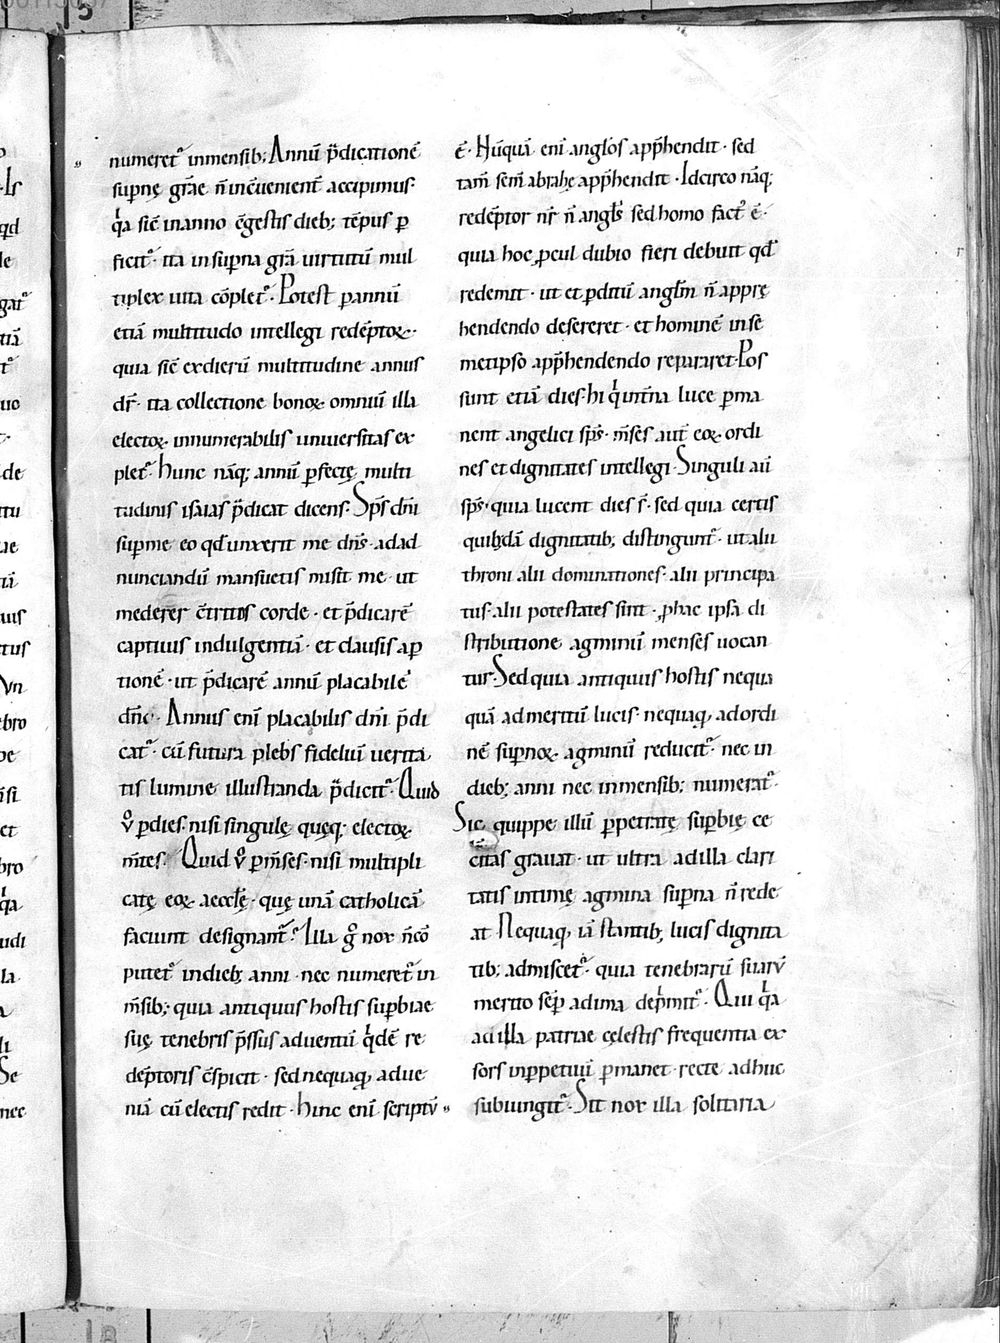 numeret᷒ inmensib; Annū p̄dicationē
supnę gr̄ae n̄ inc̄uenient̄ accipimus·
qͥa sic̄ in anno c̄gestis dieb; tēpus p
ficit᷒· ita in supna gr̄a uirtutū mul
tiplex uita cōplet᷒· Potest p annū
etiā multitudo intellegi redēptoꝝ·
quia sic̄ ex dierū multitudine annus
dr̄· ita collectione bonoꝝ omniū illa
electoꝝ innumerabilis uniuersitas ex
plet᷒· hunc nāq; annū pfectę multi
tudinis isaias p̄dicat dicens· Sps̄ dn̄i
sup me eo qd̄ unxerit me dn̄s· ad ad
nunciandū mansuetis misit me· ut
mederer c̄tritis corde· et p̄dicarē
captiuis indulgentiā· et clausis ap
tionē· ut p̄dicarē annū placabilē
dn̄o· Annus eni placabilis dn̄i p̄di
cat᷒· cū futura plebs fideliū uerita
tis lumine illustranda p̄dicit᷒· Quid
v̊ p dies nisi singulę quęq; electoꝝ
m̄tes? Quid v̊ p m̄ses· nisi multipli
catę eoꝝ aeccl̄ę· quę unā catholicā
faciunt designant᷒? Illa g̊ nox n̄ cō
putet᷒ in dieb; anni· nec numeret᷒ in
m̄sib;· quia antiquus hostis supbiae
suę tenebris p̄ssus aduentū qͥdē re
dēptoris c̄spicit· sed nequaq̄ adue
niā cū electis redit· hinc eni scriptū
ē· Nūquā eni anglos app̄hendit· sed
tam̄ sem̄ abrahę app̄hendit· Idcirco nāq;
redēptor nr̄ n̄ angl̄s sed homo fact᷒ ē·
quia hoc pcul dubio fieri debuit qd̄
redemit· ut et pditū angl̄m n̄ apprę
hendendo desereret· et hominē in se
metipso app̄hendendo repararet· Pos
sunt etiā dies· hi qͥ int̄na luce pma
nent angelici sps̄· m̄ses aut̄ eoꝝ ordi
nes et dignitates intellegi· Singuli aū
sps̄· quia lucent dies s̄· sed quia certis
quib;dā dignitatib; distingunt᷒· ut alii
throni alii dominationes· alii principa
tus· alii potestates sint· p hac ipsa di
stributione agminū menses uocan
tur· Sed quia antiquus hostis nequa
quā ad meritū lucis· nequaq̄ ad ordi
nē supnoꝝ agminū reducit᷒· nec in
dieb; anni nec in mensib; numerat᷒·
Sic quippe illū ppetratę supbię ce
citas grauat· ut ultra ad illa clari
tatis intimę agmina supna n̄ rede
at· Nequaq̄ iā stantib; lucis dignita
tib; admiscet᷒· quia tenebrarū suarū
merito semp̄ ad ima dep̄mit᷒· Qui qͥa
ad illa patriae cęlestis frequentia ex
sors inppetuū pmanet· recte adhuc
subiungit᷒· Sit nox illa solitaria